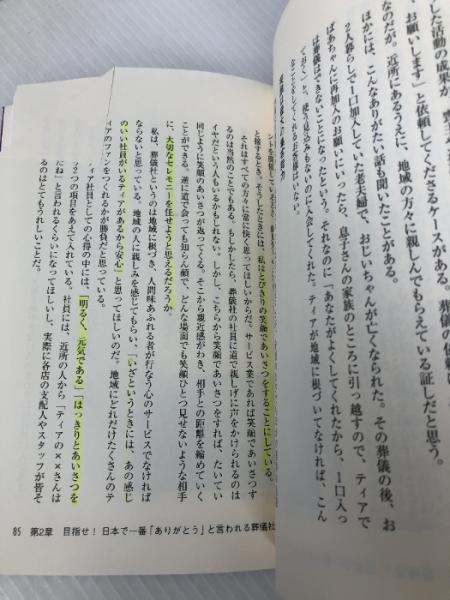 した活動の成果が
お願いします」と依頼してくださるケースがある。葬儀の依頼
なのだが、近所にあるうえに、地域の方々に親しんでもらえている証しだと思う。
ほかには、こんなありがたい話も聞いたことがある。
2人暮らしで1口加入していた老夫婦で、おじいちゃんが亡くなられた。その葬儀の後、お
ばあちゃんに再加入のお願いにいったら、息子さんの家族のところに引っ越すので、ティアで
は葬儀はできないことになったという。それなのに「あなたがよくしてくれたから、1口入っ
ておく」と、使う見込みもないのに入会してくれた。ティアが地域に根づいてなければ、こん
なことをしてくれるお客様がいない。
ントを開催している
と接するとき、そうしたときには、私はとびきりの笑顔であいさつをすることにしている。
それはすべての方々に常に快く思ってほしいからだ。サービス業であれば笑顔であいさつす
るのは当然のことでもある。もしかしたら、葬儀社の社員に道で親しげに声をかけられるのは
イヤだという人もいるかもしれない。しかし、こちらから笑顔であいさつをすれば、たいてい
同じように笑顔のあいさつが返ってくる。そこから親近感がわき、相手との距離を縮めていく
逆に道で会っても知らん顔で、どんな場面でも笑顔ひとつ見せないような相手
に、大切なセレモニーを任せようと思えるだろうか。
私は、葬儀社というのは地域に根づき、人間味あふれる者が行なう心のサービスでなければ
ならないと思っている。地域の人に親しみを感じてもらい、「いざというときには、あの感じ
のいい社員がいるティアがあるから安心」と思ってほしいのだ。地域にどれだけたくさんのテ
ィアのファンをつくれるかが勝負だと思っている。
ィア社員としての心得の中には、「明るく、元気である」「はっきりとあいさつを
2つの項目をあえて入れている。社員には、近所の人から「ティアの××さんは
だね」と言われるくらいになってほしいし、実際に各店の支配人やスタッフが皆そ
るのはとてもうれしいことだ。
85 第2章 目指せ！ 日本で一番「ありがとう」と言われる葬儀社